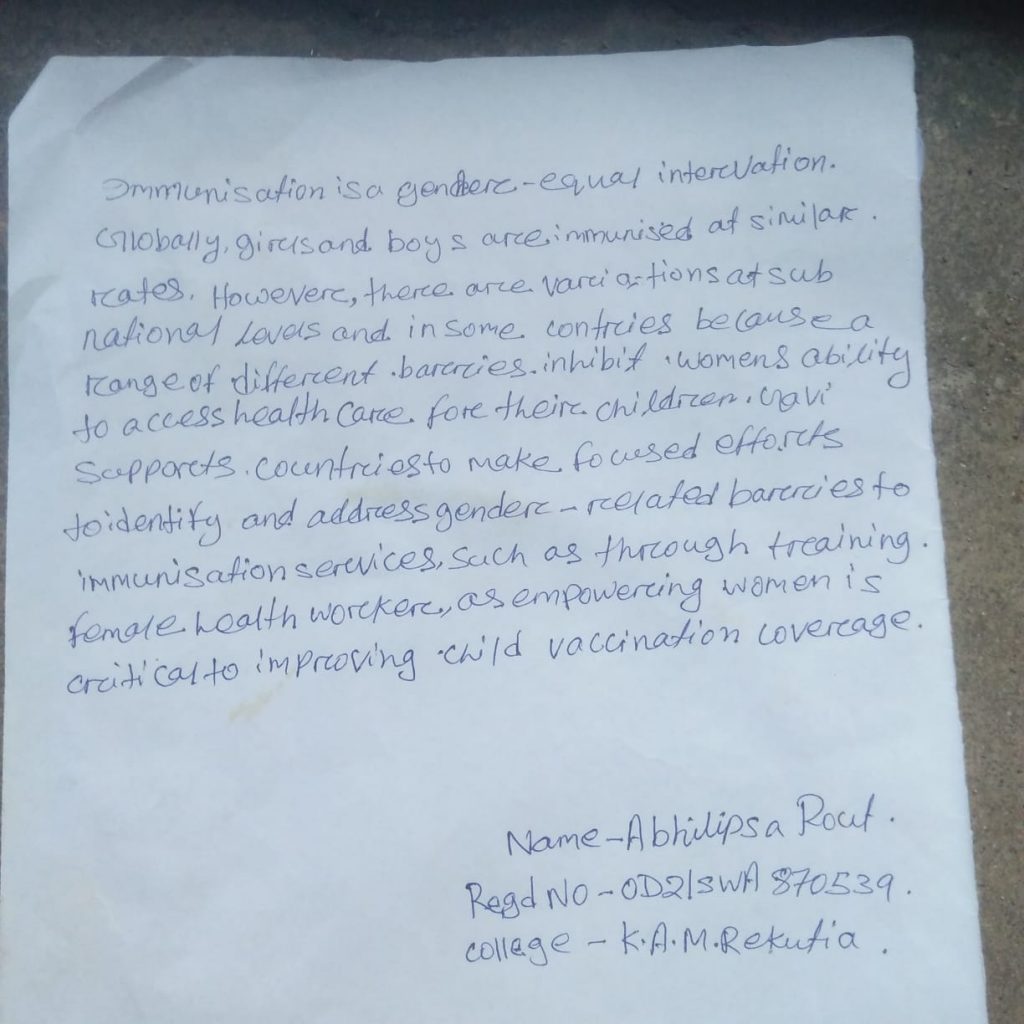 Immunisation is a gender-equal intervation.
Globally, girls and boys are immunised at similar.
rates. However, there are variations at sub
national levels and in some contries because a
range of different barries inhibit womens ability
to access health care for their children. Gavi
supports countries to make focused efforts
to identify and address gender-related barries to
immunisation services, such as through training.
female health worker, as empowering women is
critical to improving child vaccination coverage.
Name-Abhilipsa Rout.
Regd NO-OD21SWA870539.
college - K.A.M.Rekutia.